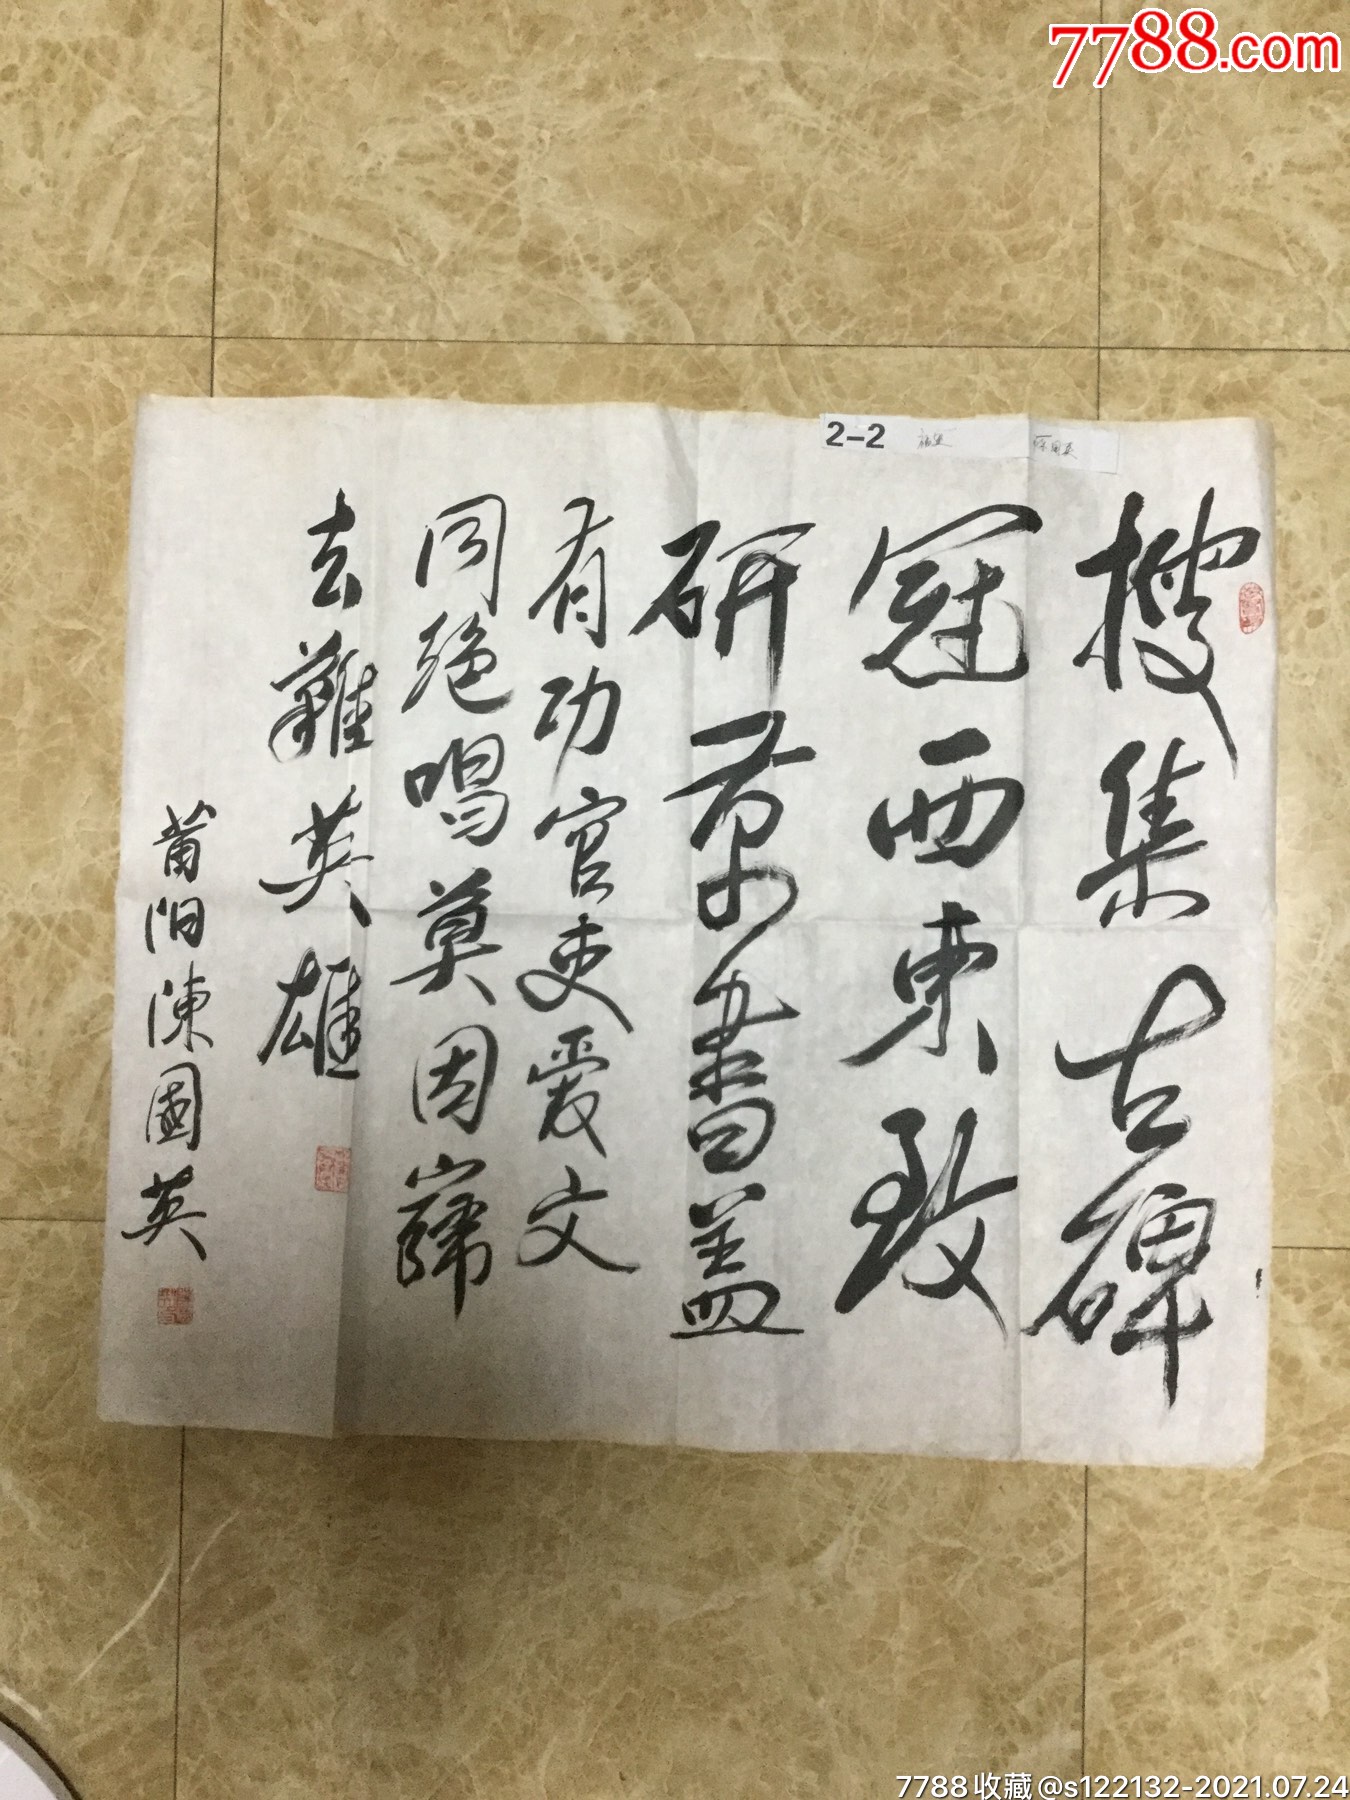 7788.com
2-2 福建 陈国英
搜集古碑
冠西東致
研草書盖
有功官吏爱文
同絕唱莫因歸
去難英雄
莆阳陳國英
7788收藏@s122132-2021.07.24